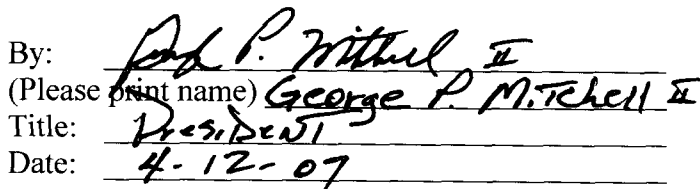 By: George P. Mitchell II
(Please print name) George P. Mitchell II
Title: President
Date: 4-12-07